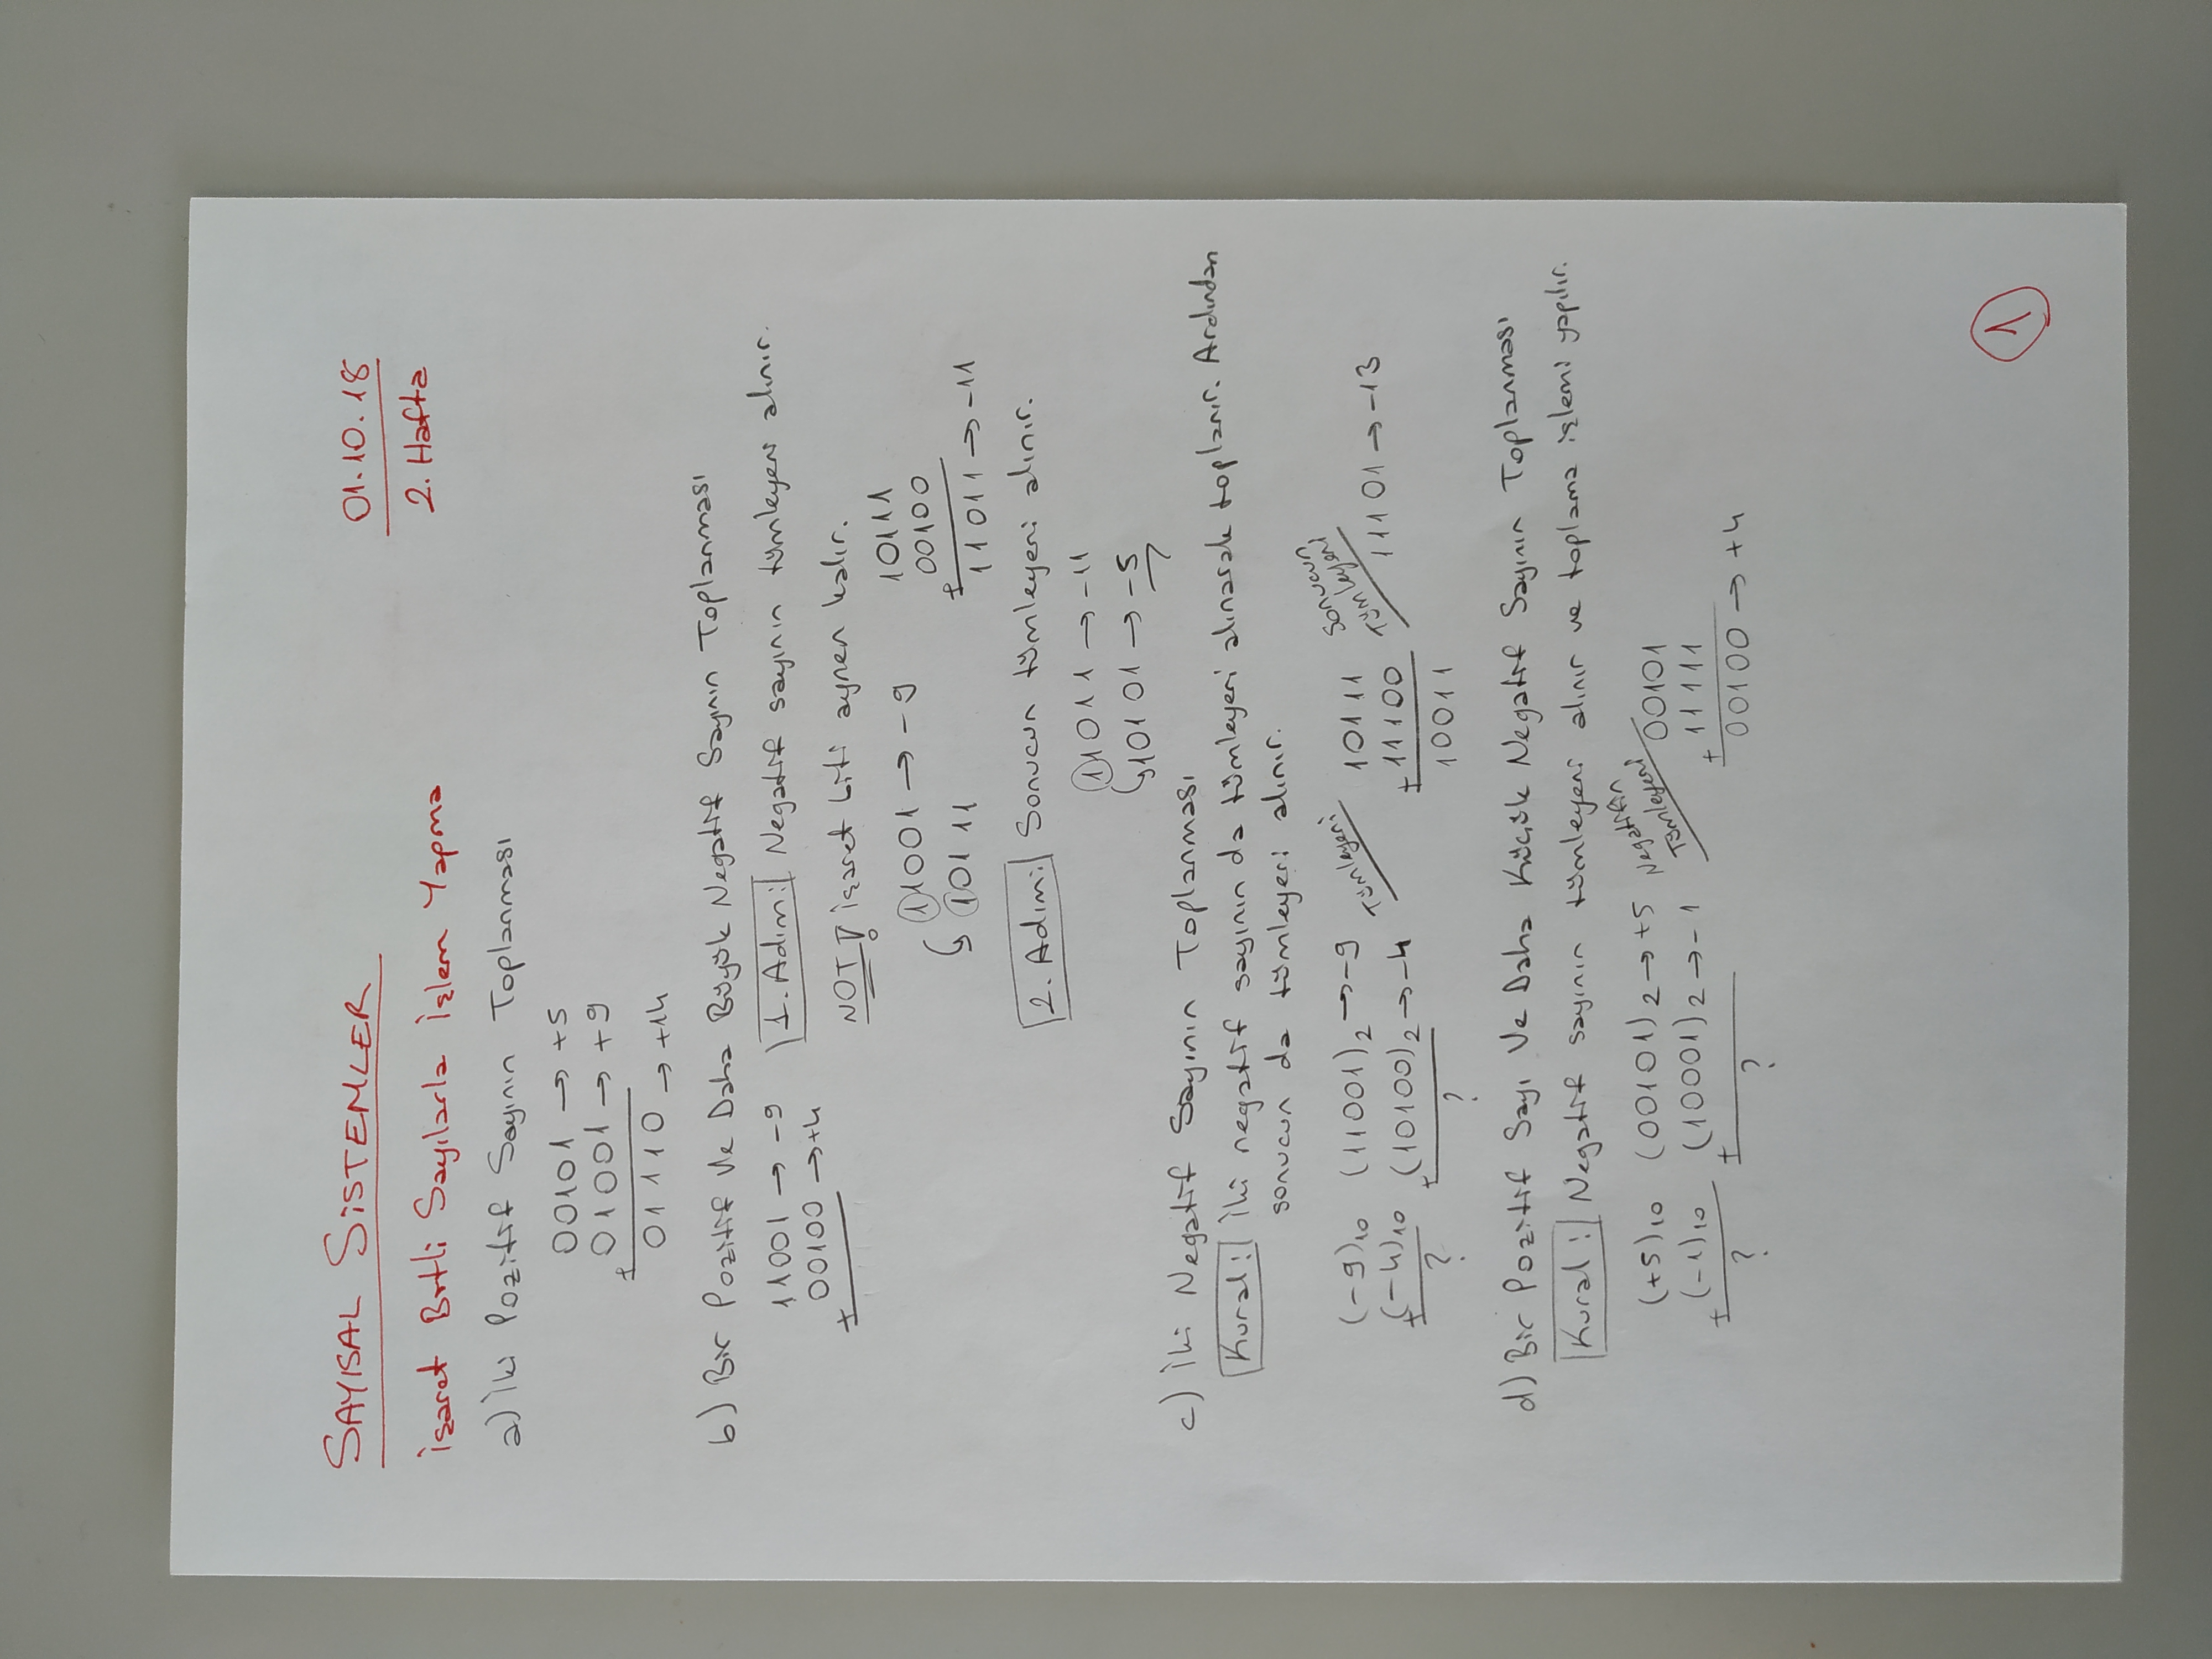 SAYISAL SİSTEMLER
01.10.18
2. Hafta
İşaret Bitli Sayılarla İşlem Yapma
a) İki Pozitif Sayının Toplanması
00101 → +5
01001 → +9
+
01110 → +14
b) Bir Pozitif Ve Daha Büyük Negatif Sayının Toplanması
11001 → -9
00100 → +4
+
1. Adım: Negatif sayının tümleyeni alınır.
NOT! İşaret biti aynen kalır.
11001 → -9
10111
10111
00100
+
11011 → -11
2. Adım: Sonucun tümleyeni alınır.
11011 → -11
10101 → -5
c) İki Negatif Sayının Toplanması
Kural: İki negatif sayının da tümleyeni alınarak toplanır. Ardından
sonucun da tümleyeni alınır.
(-9)10 (11001)2 → -9
(-4)10 (10100)2 → -4
+ +
? ?
Tümleyeni
10111
+ 11100
10011
Sonucun
Tümleyeni
11101 → -13
d) Bir Pozitif Sayı Ve Daha Küçük Negatif Sayının Toplanması
Kural: Negatif sayının tümleyeni alınır ve toplama işlemi yapılır.
(+5)10 (00101)2 → +5
(-1)10 (10001)2 → -1
+ +
? ?
Negatifin
Tümleyeni
00101
+ 11111
00100 → +4
1